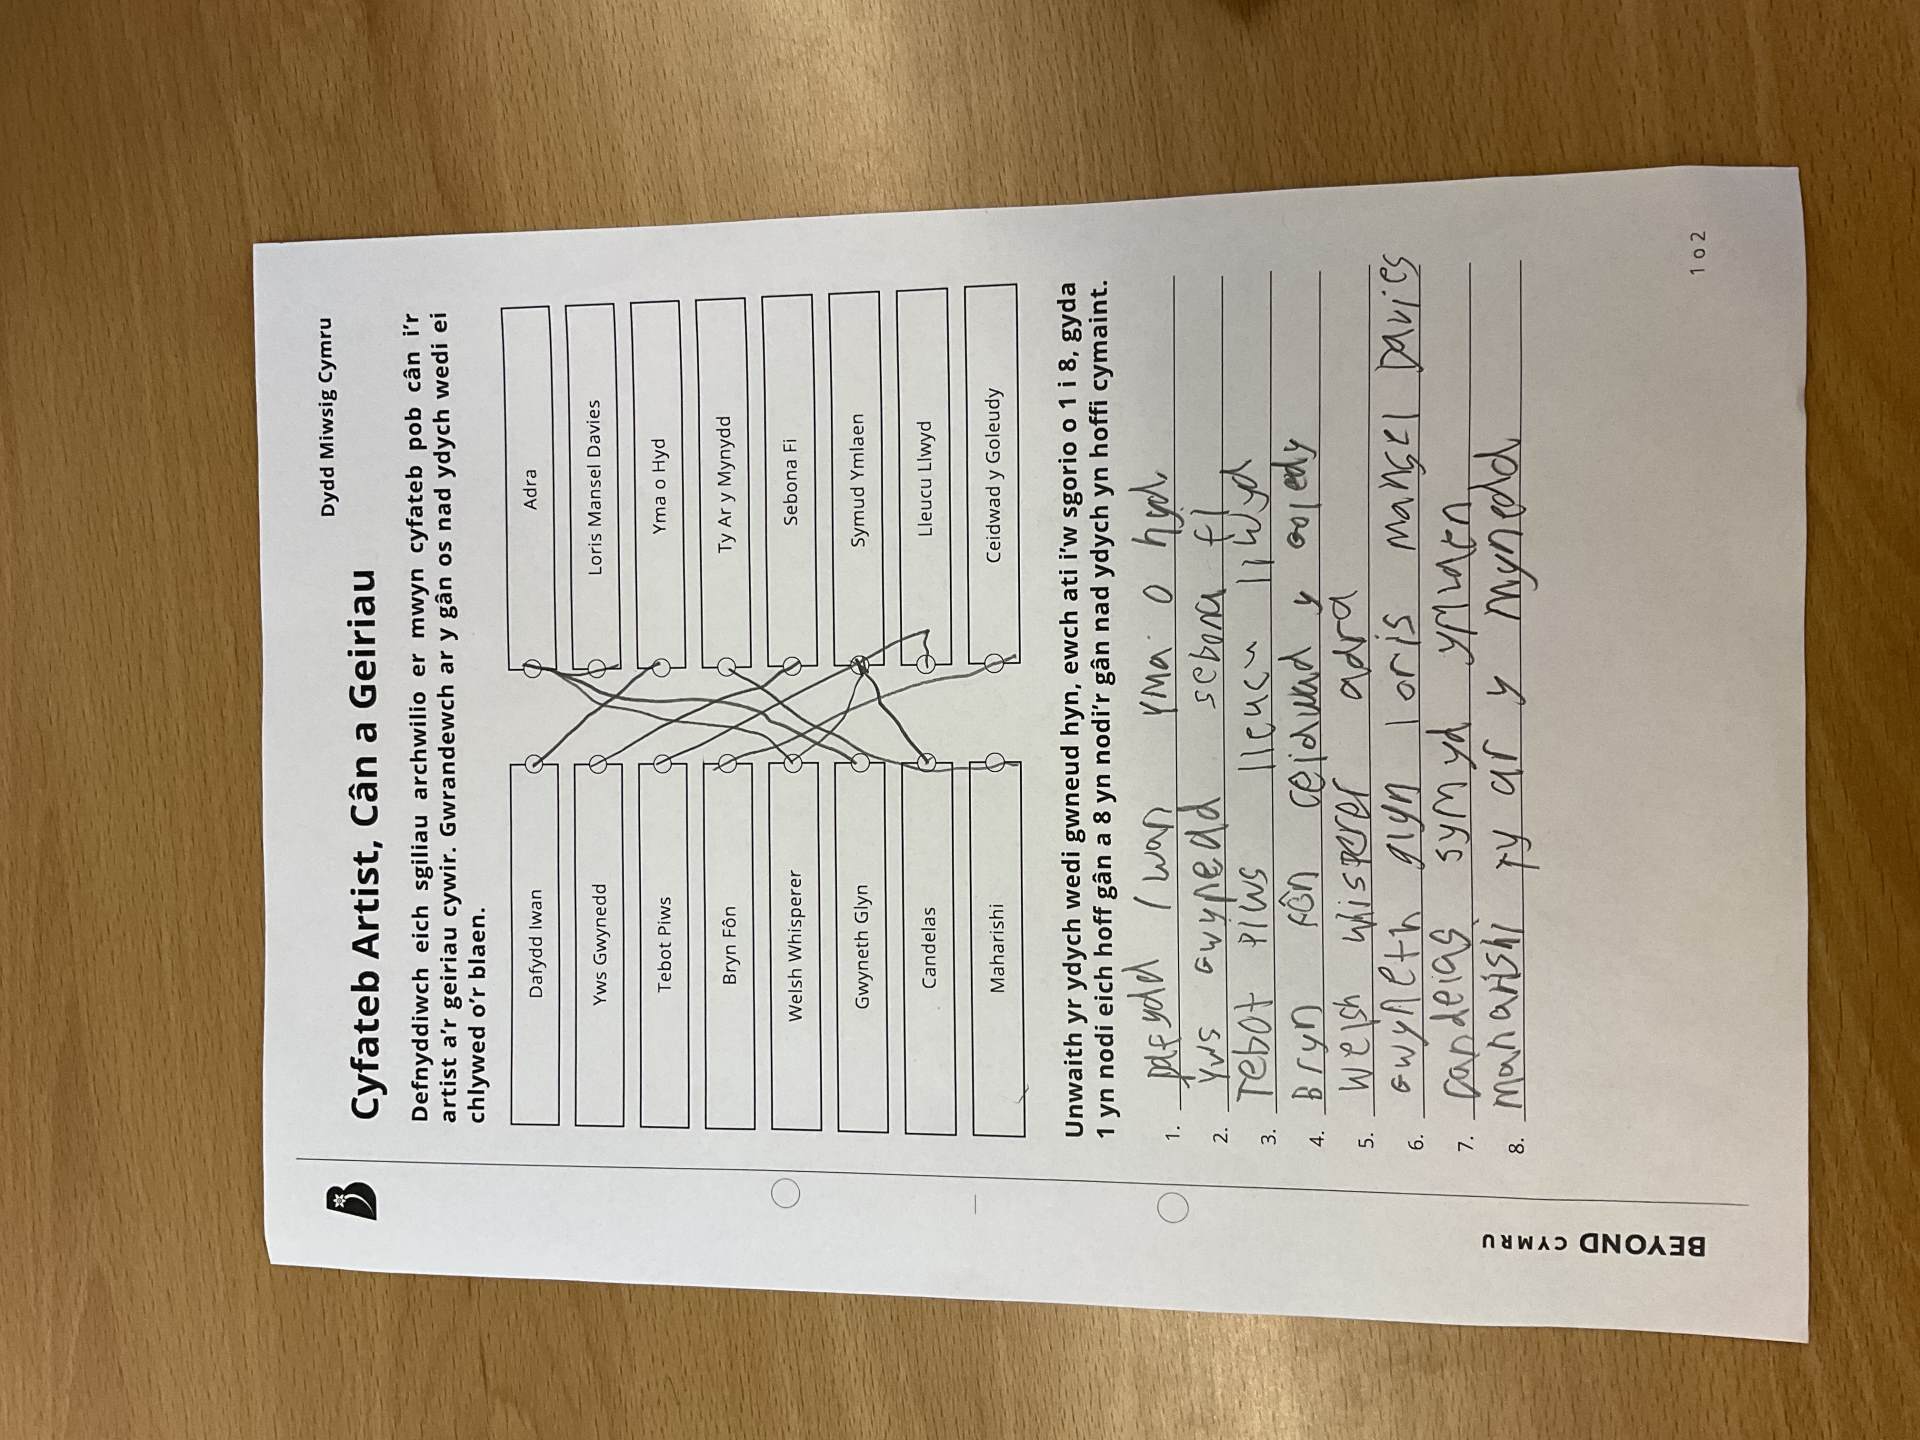 Dydd Miwsig Cymru
Cyfateb Artist, Cân a Geiriau
Defnyddiwch eich sgiliau archwilio er mwyn cyfateb pob cân i'r
artist a'r geiriau cywir. Gwrandewch ar y gân os nad ydych wedi ei
chlywed o'r blaen.
Dafydd Iwan
Adra
Yws Gwynedd
Loris Mansel Davies
Tebot Piws
Yma o Hyd
Bryn Fôn
Ty Ar y Mynydd
Welsh Whisperer
Sebona Fi
Gwyneth Glyn
Symud Ymlaen
Candelas
Lleucu Llwyd
Maharishi
Ceidwad y Goleudy
Unwaith yr ydych wedi gwneud hyn, ewch ati i'w sgorio o 1 i 8, gyda
1 yn nodi eich hoff gân a 8 yn nodi'r gân nad ydych yn hoffi cymaint.
1. Dafydd Iwan Yma o hyd
2. Yws Gwynedd sebona fi
3. Tebot Piws lleucu llwyd
4. Bryn Fôn ceidwad y Goledy
5. Welsh Whisperer adra
6. Gwyneth glyn loris mansel Davies
7. Candelas symyd ymlaen
8. Maharishi Ty ar y mynedd
BEYOND CYMRU
1 o 2